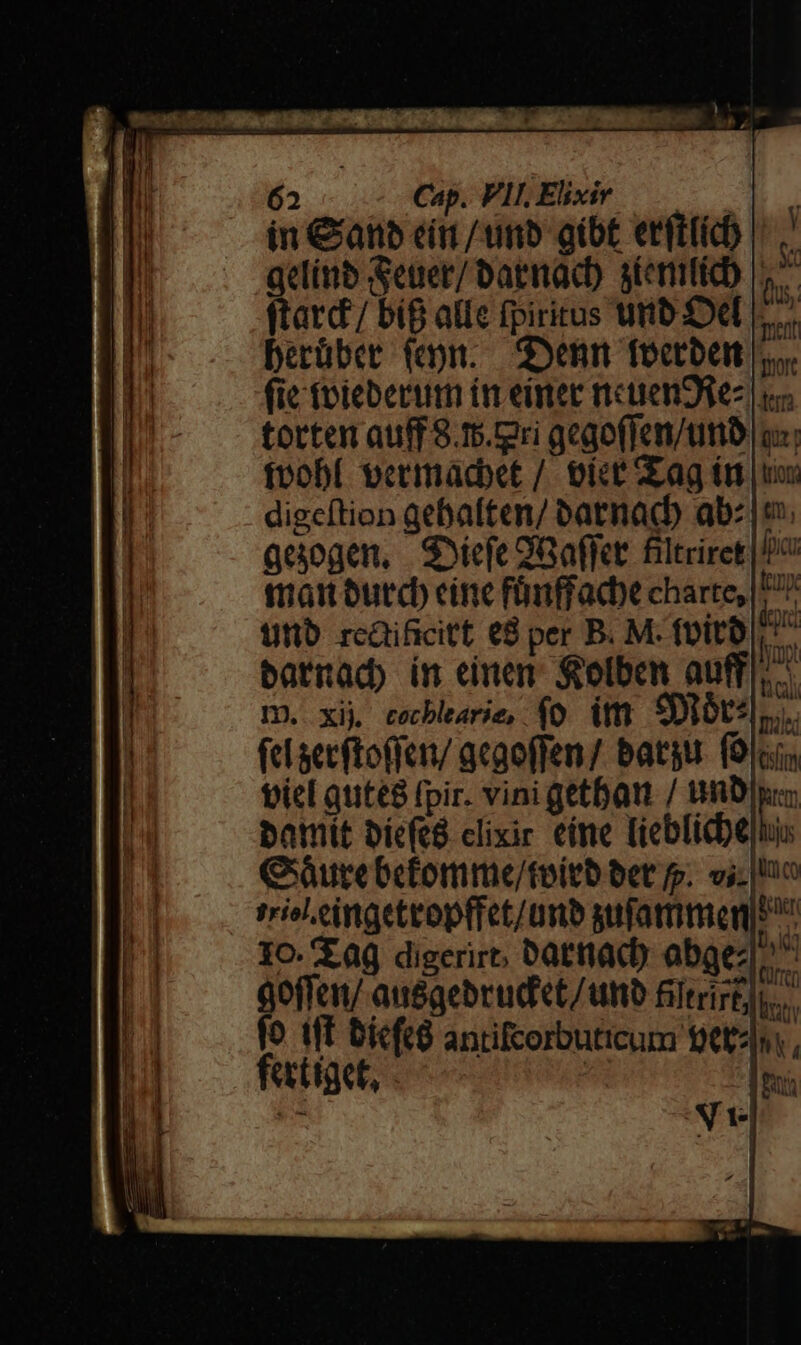 62 Cap. VII. Elixir
in Sand ein / und gibt erſtlich
gelind Feuer / darnach ziemlich
ſtarck / biß alle ſpiritus und Oel
herüber ſeyn. Denn werden
ſie wiederum in einer neuen Re-
torten auff 8. ℔. ri gegoſſen / und
wohl vermachet / vier Tag in
digeſtion gehalten / darnach ab-
gezogen. Dieſe Waſſer filtriret
man durch eine fünffache charte,
und rectificirt es per B. M. wird
darnach in einen Kolben auff
m. xij. cochleariæ, ſo im Mör-
ſel zerſtoſſen / gegoſſen / darzu ſo
viel gutes ſpir. vini gethan / und
damit dieſes elixir eine liebliche
Säure bekomme / wird der ſp. vi-
triol. eingetropffet / und zuſammen
10. Tag digerirt, darnach abge-
goſſen / ausgedrucket / und filtrirt,
ſo iſt dieſes antiſcorbuticum ver-
fertiget.
VI-